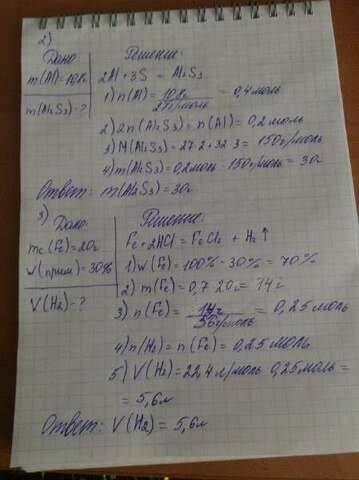 2)
Дано
m(Al)=10,8г
m(Al2S3)=?
Решение:
2Al+3S = Al2S3
1) n(Al)= 10,8г / 27г/моль = 0,4 моль
2) 2n(Al2S3)=n(Al)=0,2 моль
3) M(Al2S3)=27·2+32·3=150г/моль
4) m(Al2S3)=0,2моль·150г/моль=30г
Ответ: m(Al2S3)=30г
3)
Дано:
mc(Fe)=20г
W(прим)=30%
V(H2)=?
Решение:
Fe+2HCl=FeCl2+H2↑
1) W(Fe)=100%-30%=70%
2) m(Fe)=0,7·20г=14г
3) n(Fe)= 14г / 56г/моль = 0,25моль
4) n(H2)=n(Fe)=0,25моль
5) V(H2)=22,4л/моль·0,25моль=
=5,6л
Ответ: V(H2)=5,6л